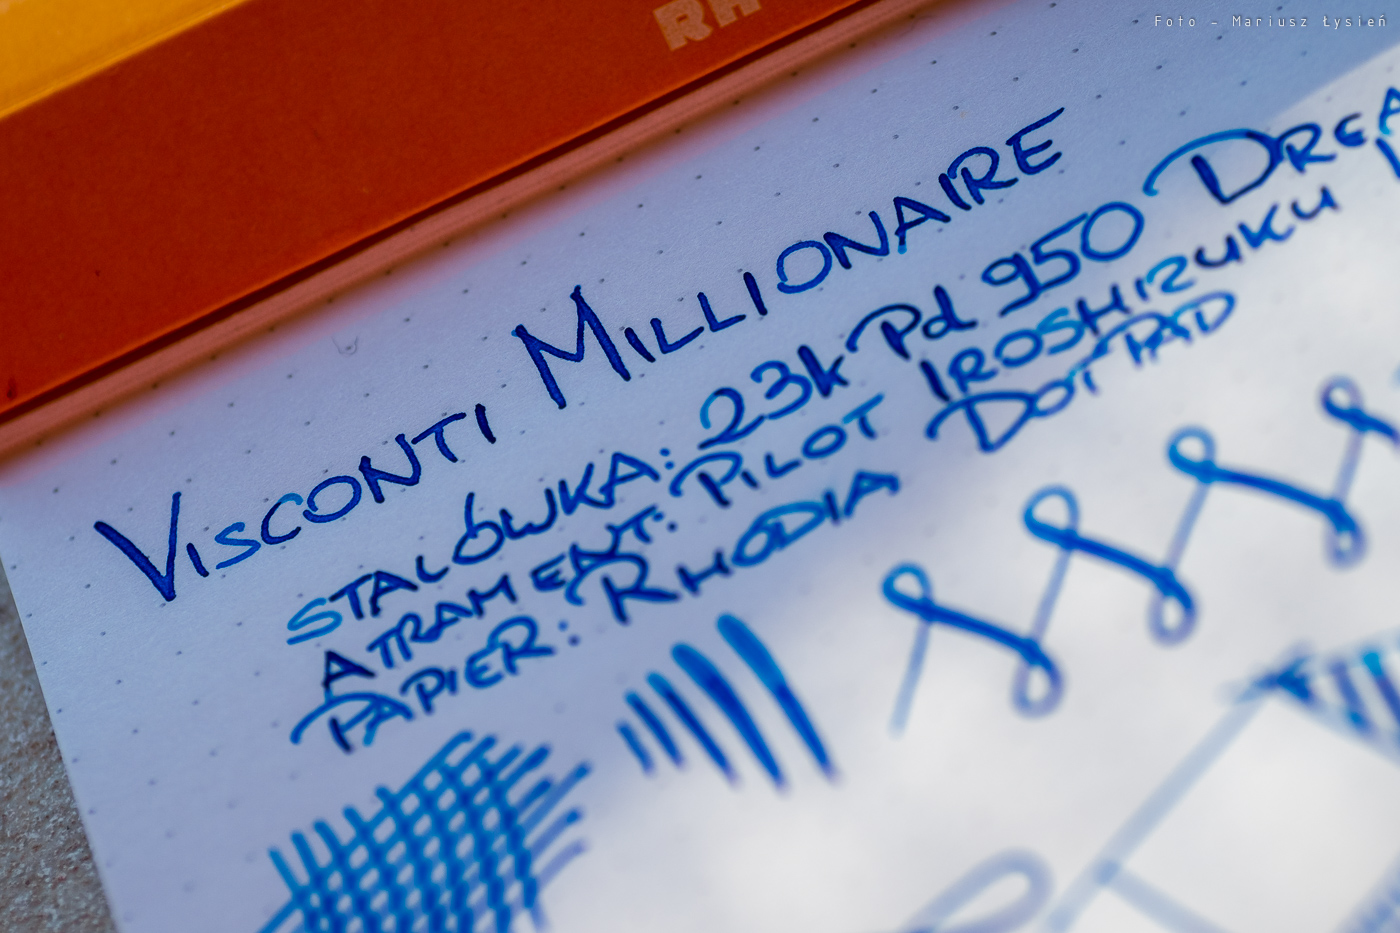 Foto - Mariusz Łysień
RH
VISCONTI MILLIONAIRE
STALÓWKA: 23k Pd 950 DREA
ATRAMENT: PILOT IROSHIZUKU
PAPIER: RHODIA DOT PAD